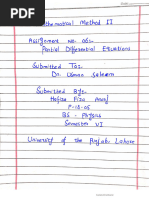 Mathematical Method II
Assignment no. 06:-
Partial Differential Equations
Submitted To:-
Dr. Usman Saleem
Submitted By:-
Hafiza Fiza
F-18-05
BS - Physics
Semester VI
University of the Punjab, Lahore